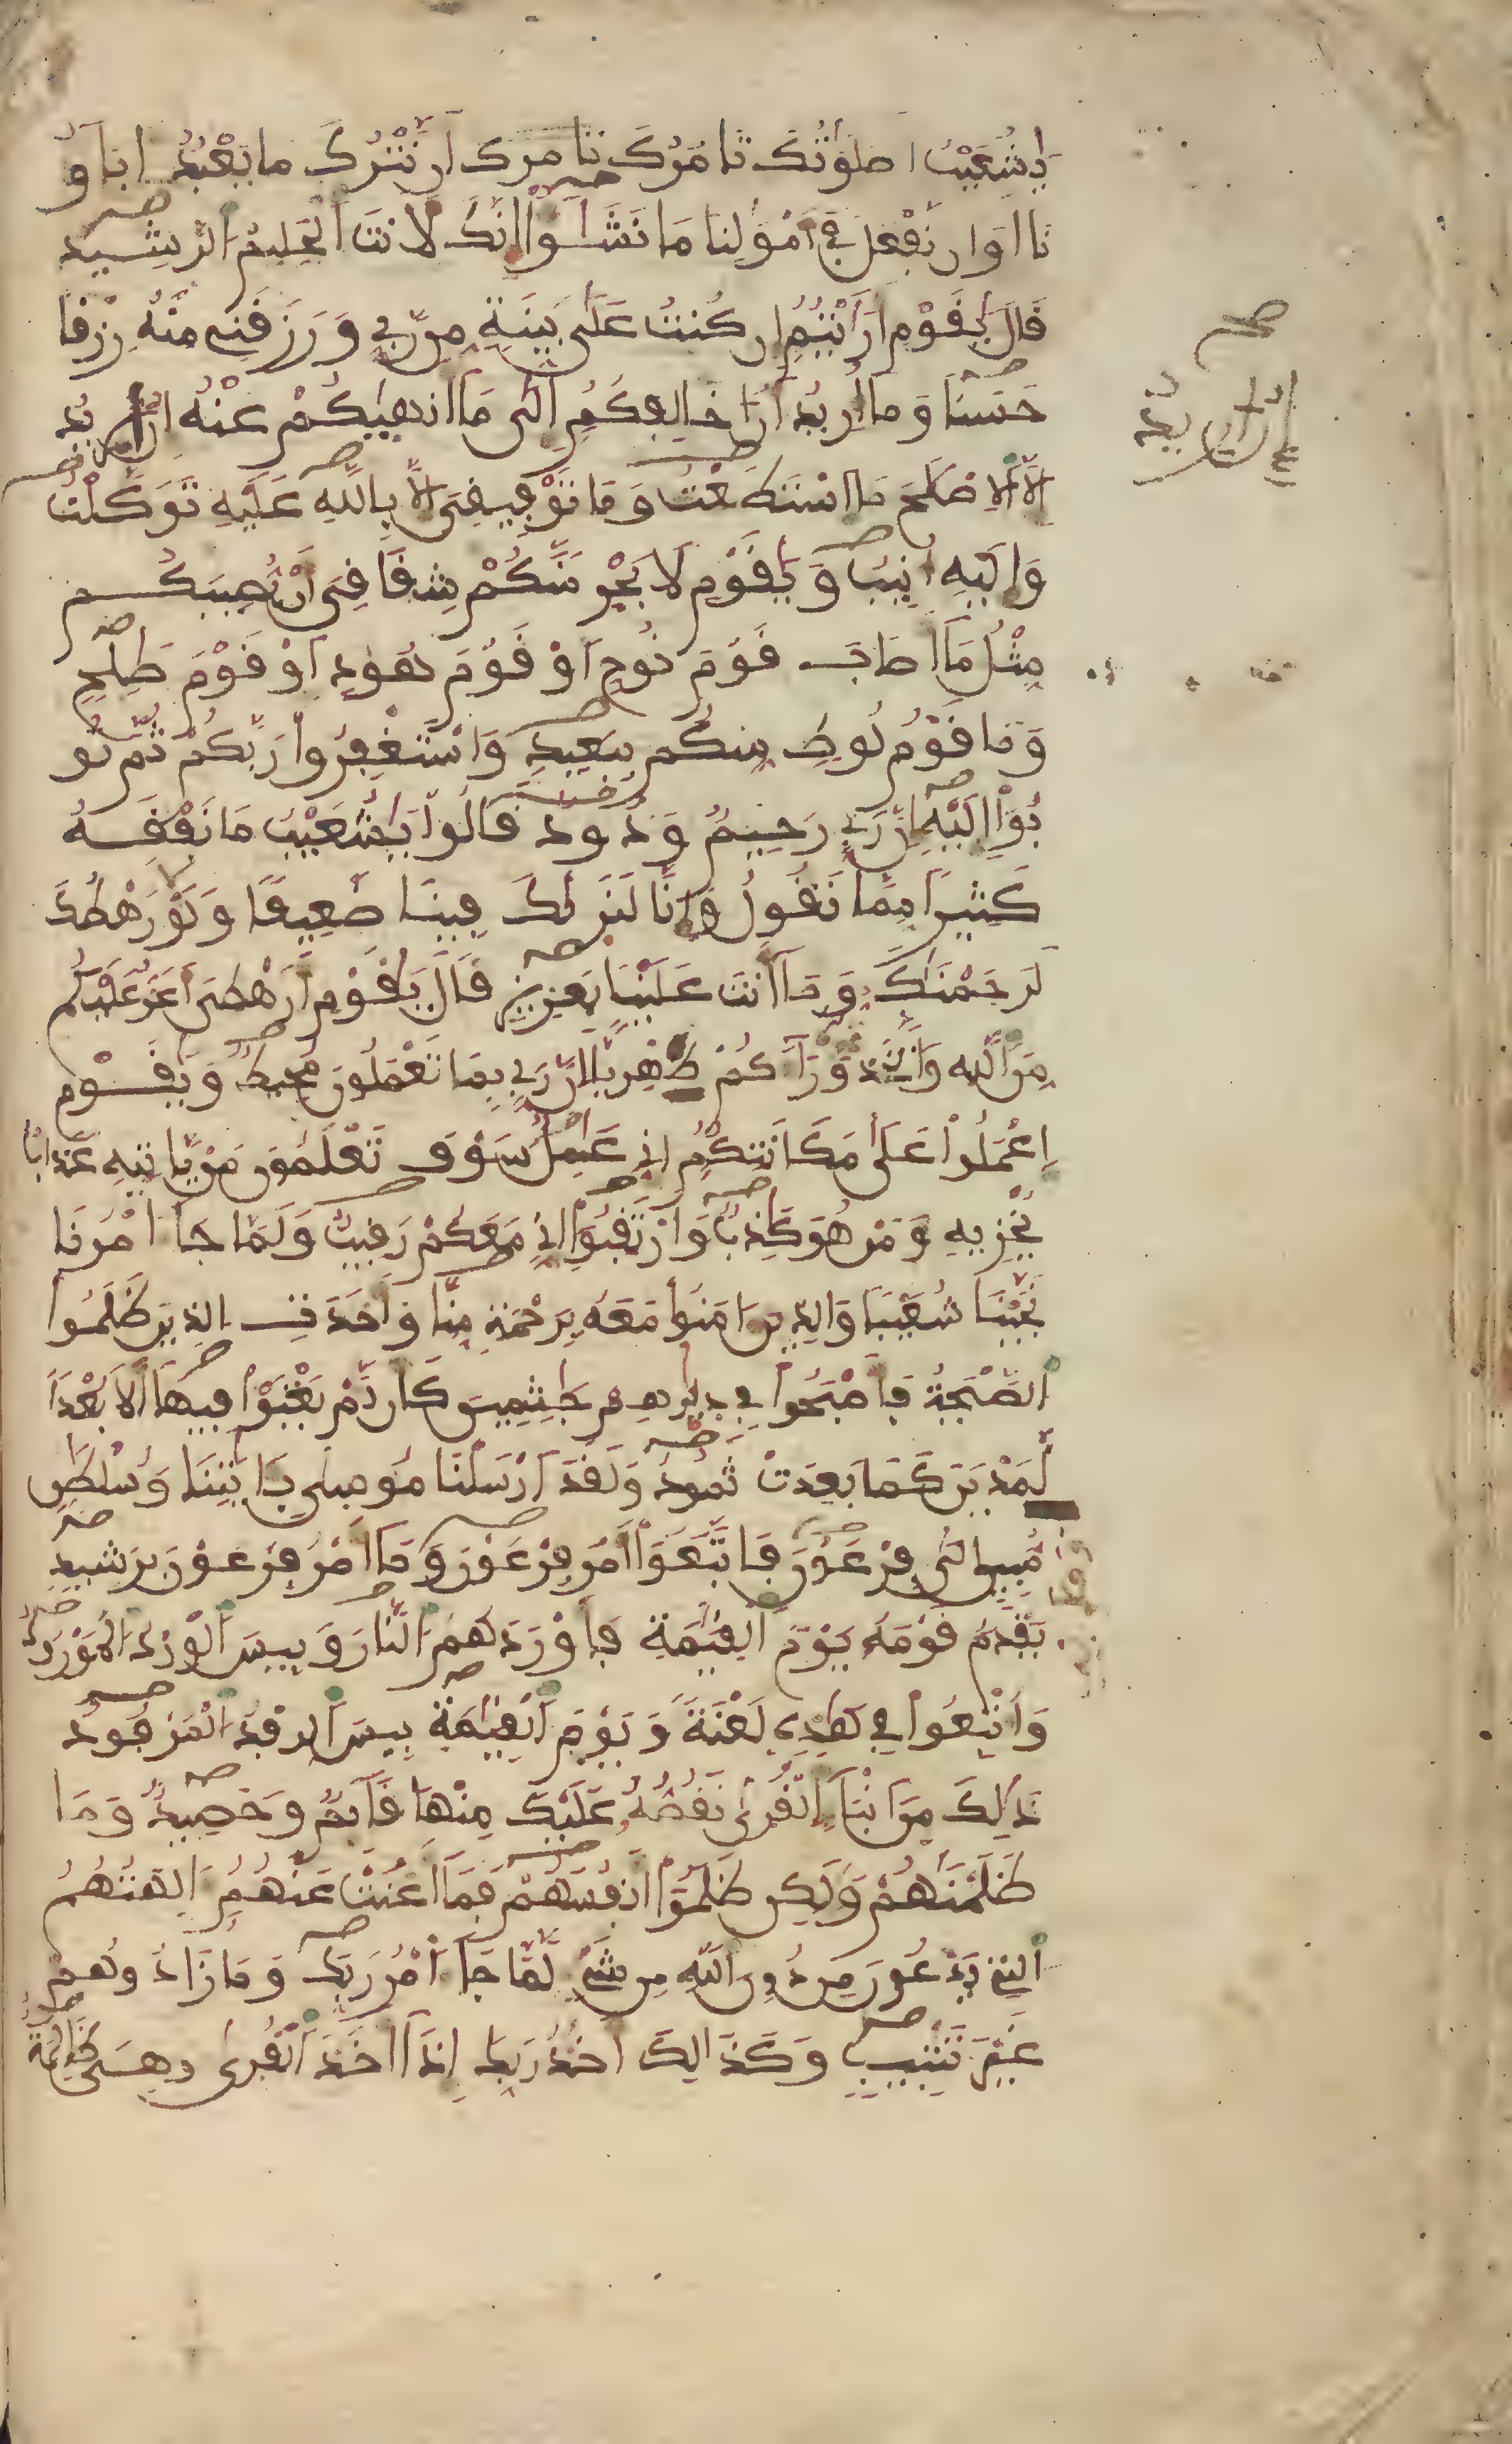 يشعيب اصلوتك تامرك تامرك ان نترك ما يعبد اباو
نا او ان نفعل في امولنا ما نشؤا انك لانت الحليم الرشيد
قال يقوم ارايتم ان كنت على بينة من ربي ورزقني منه رزقا
حسنا وما اريد ان اخالفكم الى ما انهيكم عنه ان اريد
الا الاصلح ما استطعت وما توفيقي الا بالله عليه توكلت
واليه انيب ويقوم لا يجرمنكم شقاقي ان يصيبكم
مثل ما اصاب قوم نوح او قوم هود او قوم صلح
وما قوم لوط منكم ببعيد واستغفروا ربكم ثم تو
بوا اليه ان ربي رحيم ودود قالوا يشعيب ما نفقه
كثيرا مما تقول وانا لنريك فينا ضعيفا ولولا رهطك
لرجمنك وما انت علينا بعزيز قال يقوم ارهطي اعز عليكم
من الله واتخذتموه وراكم ظهريا ان ربي بما تعملون محيط ويقوم
اعملوا على مكانتكم اني عمل سوف تعلمون من ياتيه عذاب
يخزيه ومن هو كذب وارتقبوا اني معكم رقيب ولما جا امرنا
نجينا شعيبا والذين امنوا معه برحمة منا واخذت الذين ظلموا
الصيحة فاصبحوا في ديرهم جثمين كان لم يغنوا فيها الا بعدا
لمدين كما بعدت ثمود ولقد ارسلنا موسى بايتنا وسلطن
مبين الى فرعون فاتبعوا امر فرعون وما امر فرعون برشيد
يقدم قومه يوم القيمة فاوردهم النار وبيس الورد المورود
واتبعوا في هذه لعنة ويوم القيمة بيس الرفد المرفود
ذلك من انبا القرى نقصه عليك منها قايم وحصيد وما
ظلمنهم ولكن ظلموا انفسهم فما اغنت عنهم الهتهم
التي يدعون من دون الله من شي لما جا امر ربك وما زادوهم
غير تتبيب وكذالك اخذ ربك اذا اخذ القرى وهي ظلمة
صح
ان اريد